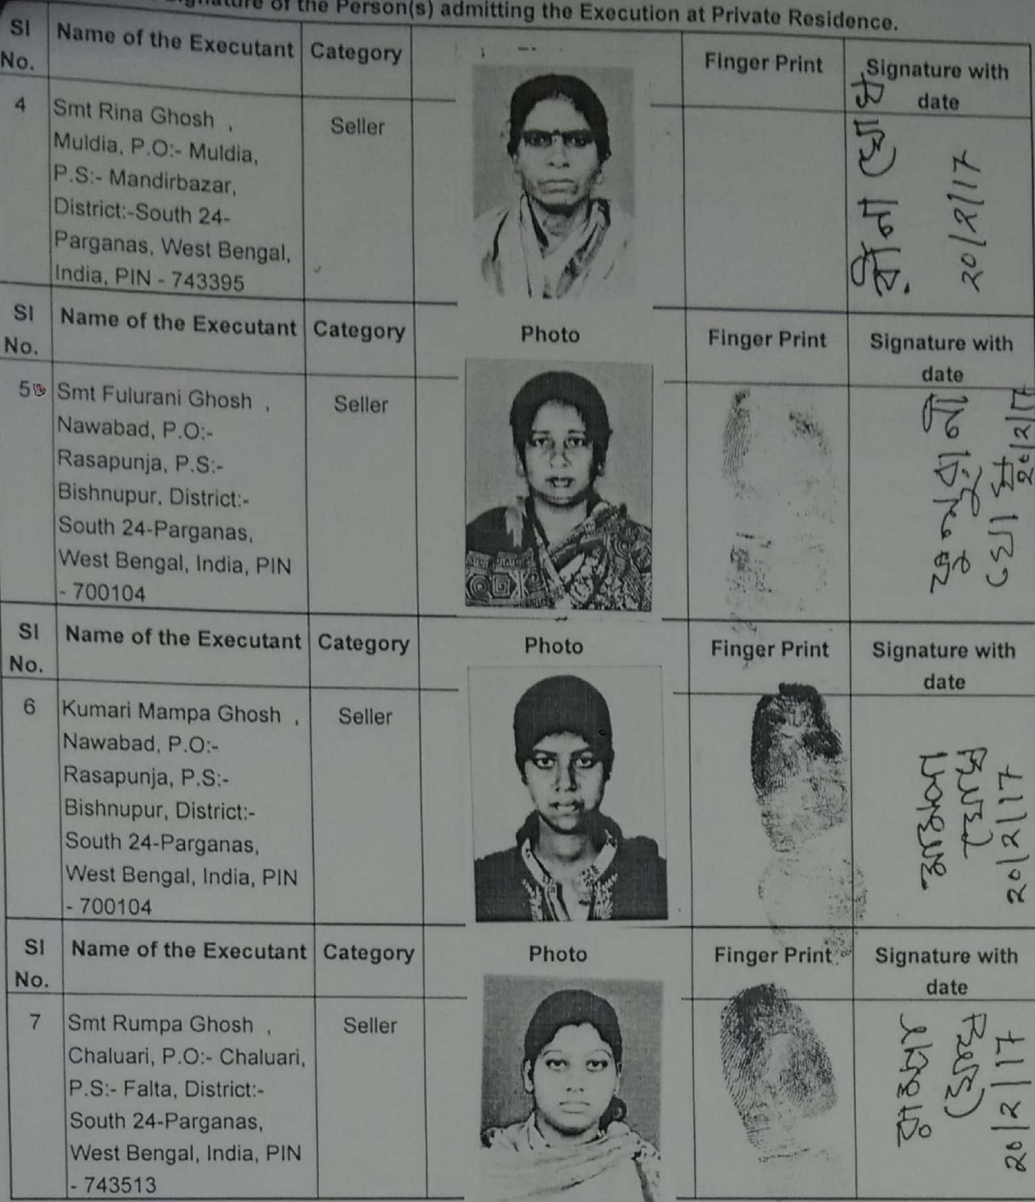 Signature of the Person(s) admitting the Execution at Private Residence.
Sl No. Name of the Executant Category Finger Print Signature with date
4 Smt Rina Ghosh , Seller
Muldia, P.O:- Muldia,
P.S:- Mandirbazar,
District:-South 24-
Parganas, West Bengal,
India, PIN - 743395
রীনা ঘোষ
২০/২/১৭
Sl No. Name of the Executant Category Photo Finger Print Signature with date
5 Smt Fulurani Ghosh , Seller
Nawabad, P.O:-
Rasapunja, P.S:-
Bishnupur, District:-
South 24-Parganas,
West Bengal, India, PIN
- 700104
ফুলুরানী
ঘোষ
২০/২/১৭
Sl No. Name of the Executant Category Photo Finger Print Signature with date
6 Kumari Mampa Ghosh , Seller
Nawabad, P.O:-
Rasapunja, P.S:-
Bishnupur, District:-
South 24-Parganas,
West Bengal, India, PIN
- 700104
মাম্পা
ঘোষ
২০/২/১৭
Sl No. Name of the Executant Category Photo Finger Print Signature with date
7 Smt Rumpa Ghosh , Seller
Chaluari, P.O:- Chaluari,
P.S:- Falta, District:-
South 24-Parganas,
West Bengal, India, PIN
- 743513
রুম্পা
ঘোষ
২০/২/১৭